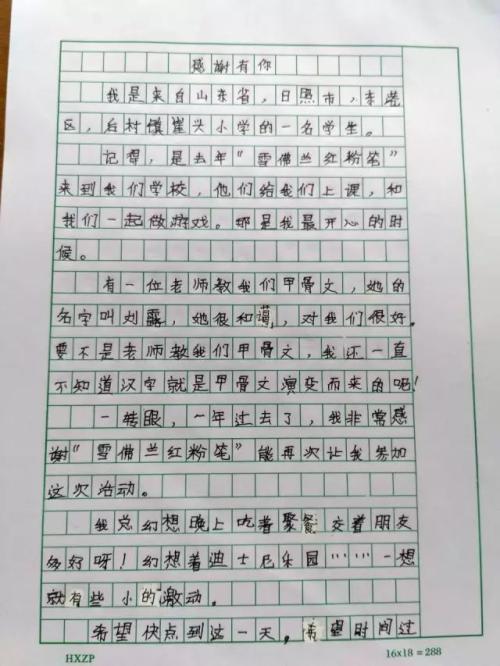 感谢有你
我是来自山东省，日照市，东港
区，后村镇崖头小学的一名学生。
记得，是去年“雪佛兰红粉笔”
来到我们学校，他们给我们上课，和
我们一起做游戏。那是我最开心的时
候。
有一位老师教我们甲骨文，她的
名字叫刘露，她很和蔼，对我们很好，
要不是老师教我们甲骨文，我还一直
不知道汉字就是甲骨文演变而来的呢！
一转眼，一年过去了，我非常感
谢“雪佛兰红粉笔”能再次让我参加
这次活动。
我总幻想晚上吃着聚餐交着朋友
多好呀！幻想着迪士尼乐园……一想
就有些小的激动。
希望快点到这一天。希望时间过
HXZP 16x18=288